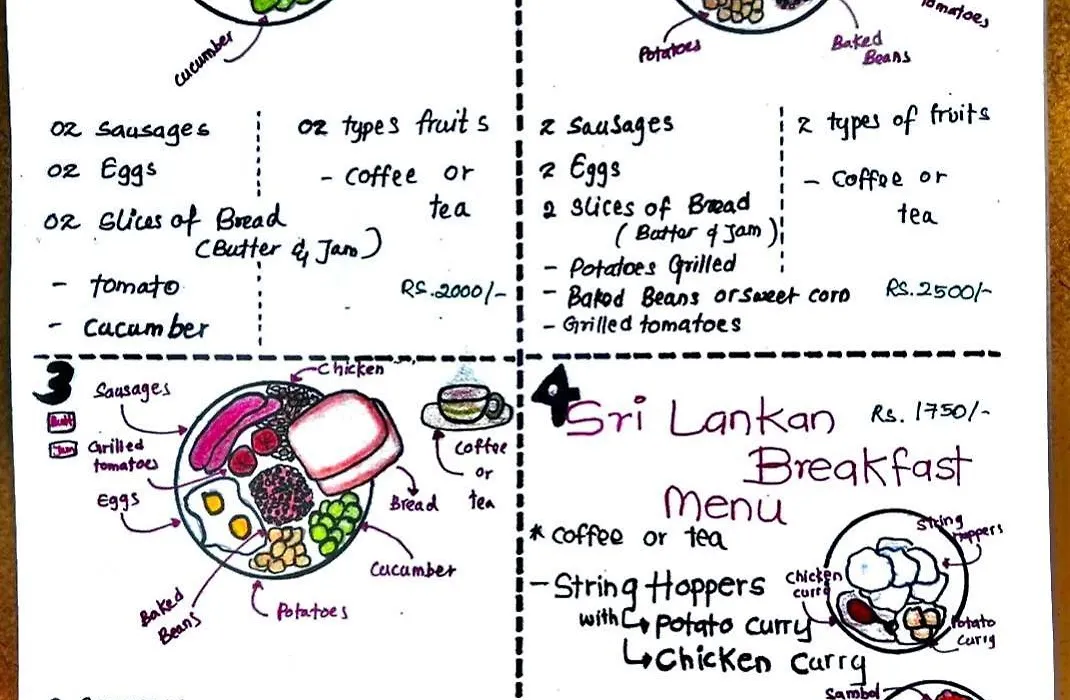 cucumber
02 Sausages
02 Eggs
02 Slices of Bread
(Butter & Jam)
- tomato
- cucumber
02 types fruits
- coffee or
tea
RS.2000/-
Potatoes
Baked
Beans
Tomatoes
2 Sausages
2 Eggs
2 Slices of Bread
(Butter & Jam)
- Potatoes Grilled
- Baked Beans or sweet corn
- Grilled tomatoes
2 types of fruits
- Coffee or
tea
RS.2500/-
3
Chicken
Sausages
Jam
Grilled
tomatoes
Eggs
Baked
Beans
Potatoes
Cucumber
Bread
Coffee
or
tea
4
Sri Lankan
Rs. 1750/-
Breakfast
Menu
* coffee or tea
- String Hoppers
with ↳ potato curry
↳ Chicken Curry
String
Hoppers
Chicken
curry
Potato
curry
Sambol